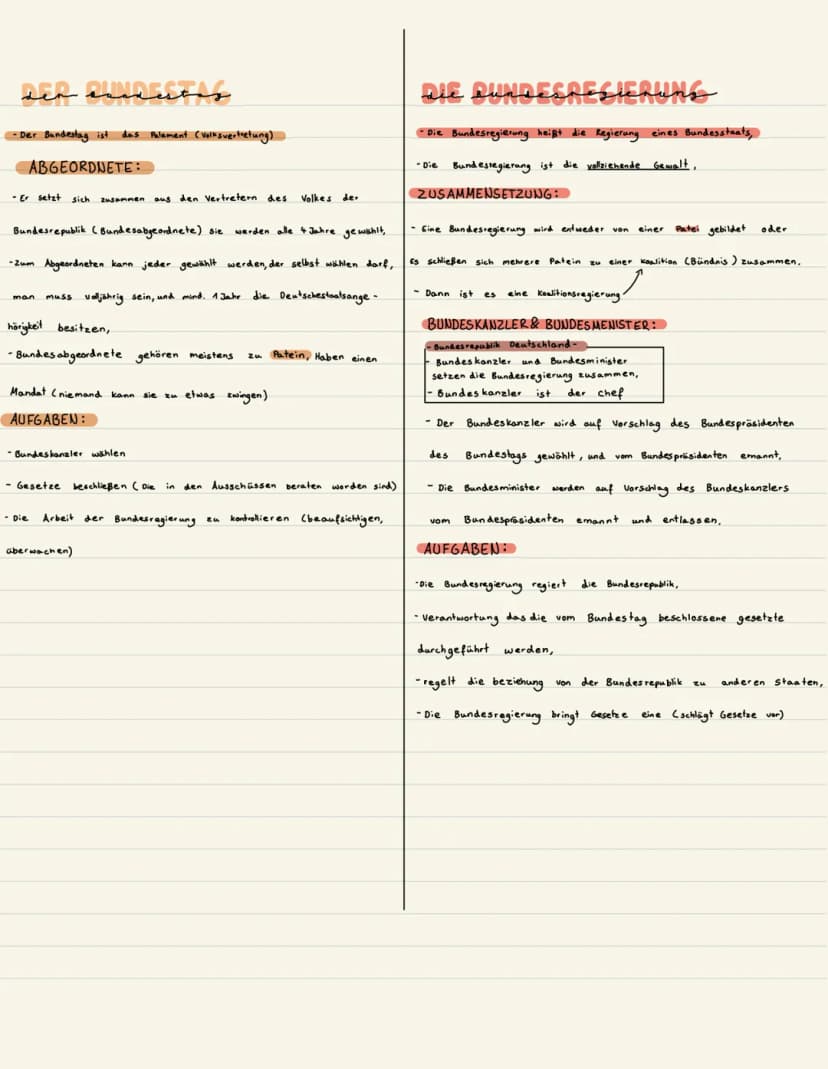 DER BUNDESTAG
der bundestag
- Der Bundestag ist das Palament (Volksvertretung)
ABGEORDNETE:
- Er setzt sich zusammen aus den Vertretern des Volkes der
Bundesrepublik (Bundesabgeordnete) sie werden alle 4 Jahre gewählt,
- Zum Abgeordneten kann jeder gewählt werden, der selbst wählen darf,
man muss volljährig sein, und mind. 1 Jahr die Deutschestaatsange-
hörigkeit besitzen,
- Bundesabgeordnete gehören meistens zu Patein, Haben einen
Mandat (niemand kann sie zu etwas zwingen)
AUFGABEN:
- Bundeskanzler wählen
- Gesetze beschließen (Die in den Ausschüssen beraten worden sind)
- Die Arbeit der Bundesregierung zu kontrollieren (beaufsichtigen,
überwachen)
DIE BUNDESREGIERUNG
die bundesregierung
- Die Bundesregierung heißt die Regierung eines Bundesstaats,
- Die Bundesregierung ist die vollziehende Gewalt,
ZUSAMMENSETZUNG:
- Eine Bundesregierung wird entweder von einer Patei gebildet oder
Es schließen sich mehrere Patein zu einer Koalition (Bündnis) zusammen.
- Dann ist es eine Koalitionsregierung
BUNDESKANZLER & BUNDESMENISTER:
- Bundesrepublik Deutschland -
- Bundeskanzler und Bundesminister
setzen die Bundesregierung zusammen,
- Bundeskanzler ist der Chef
- Der Bundeskanzler wird auf Vorschlag des Bundespräsidenten
des Bundestags gewählt, und vom Bundespräsidenten ernannt.
- Die Bundesminister werden auf Vorschlag des Bundeskanzlers
vom Bundespräsidenten ernannt und entlassen.
AUFGABEN:
- Die Bundesregierung regiert die Bundesrepublik,
- Verantwortung das die vom Bundestag beschlossene gesetzte
durchgeführt werden,
- regelt die beziehung von der Bundesrepublik zu anderen Staaten,
- Die Bundesregierung bringt Gesetze eine (schlägt Gesetze vor)